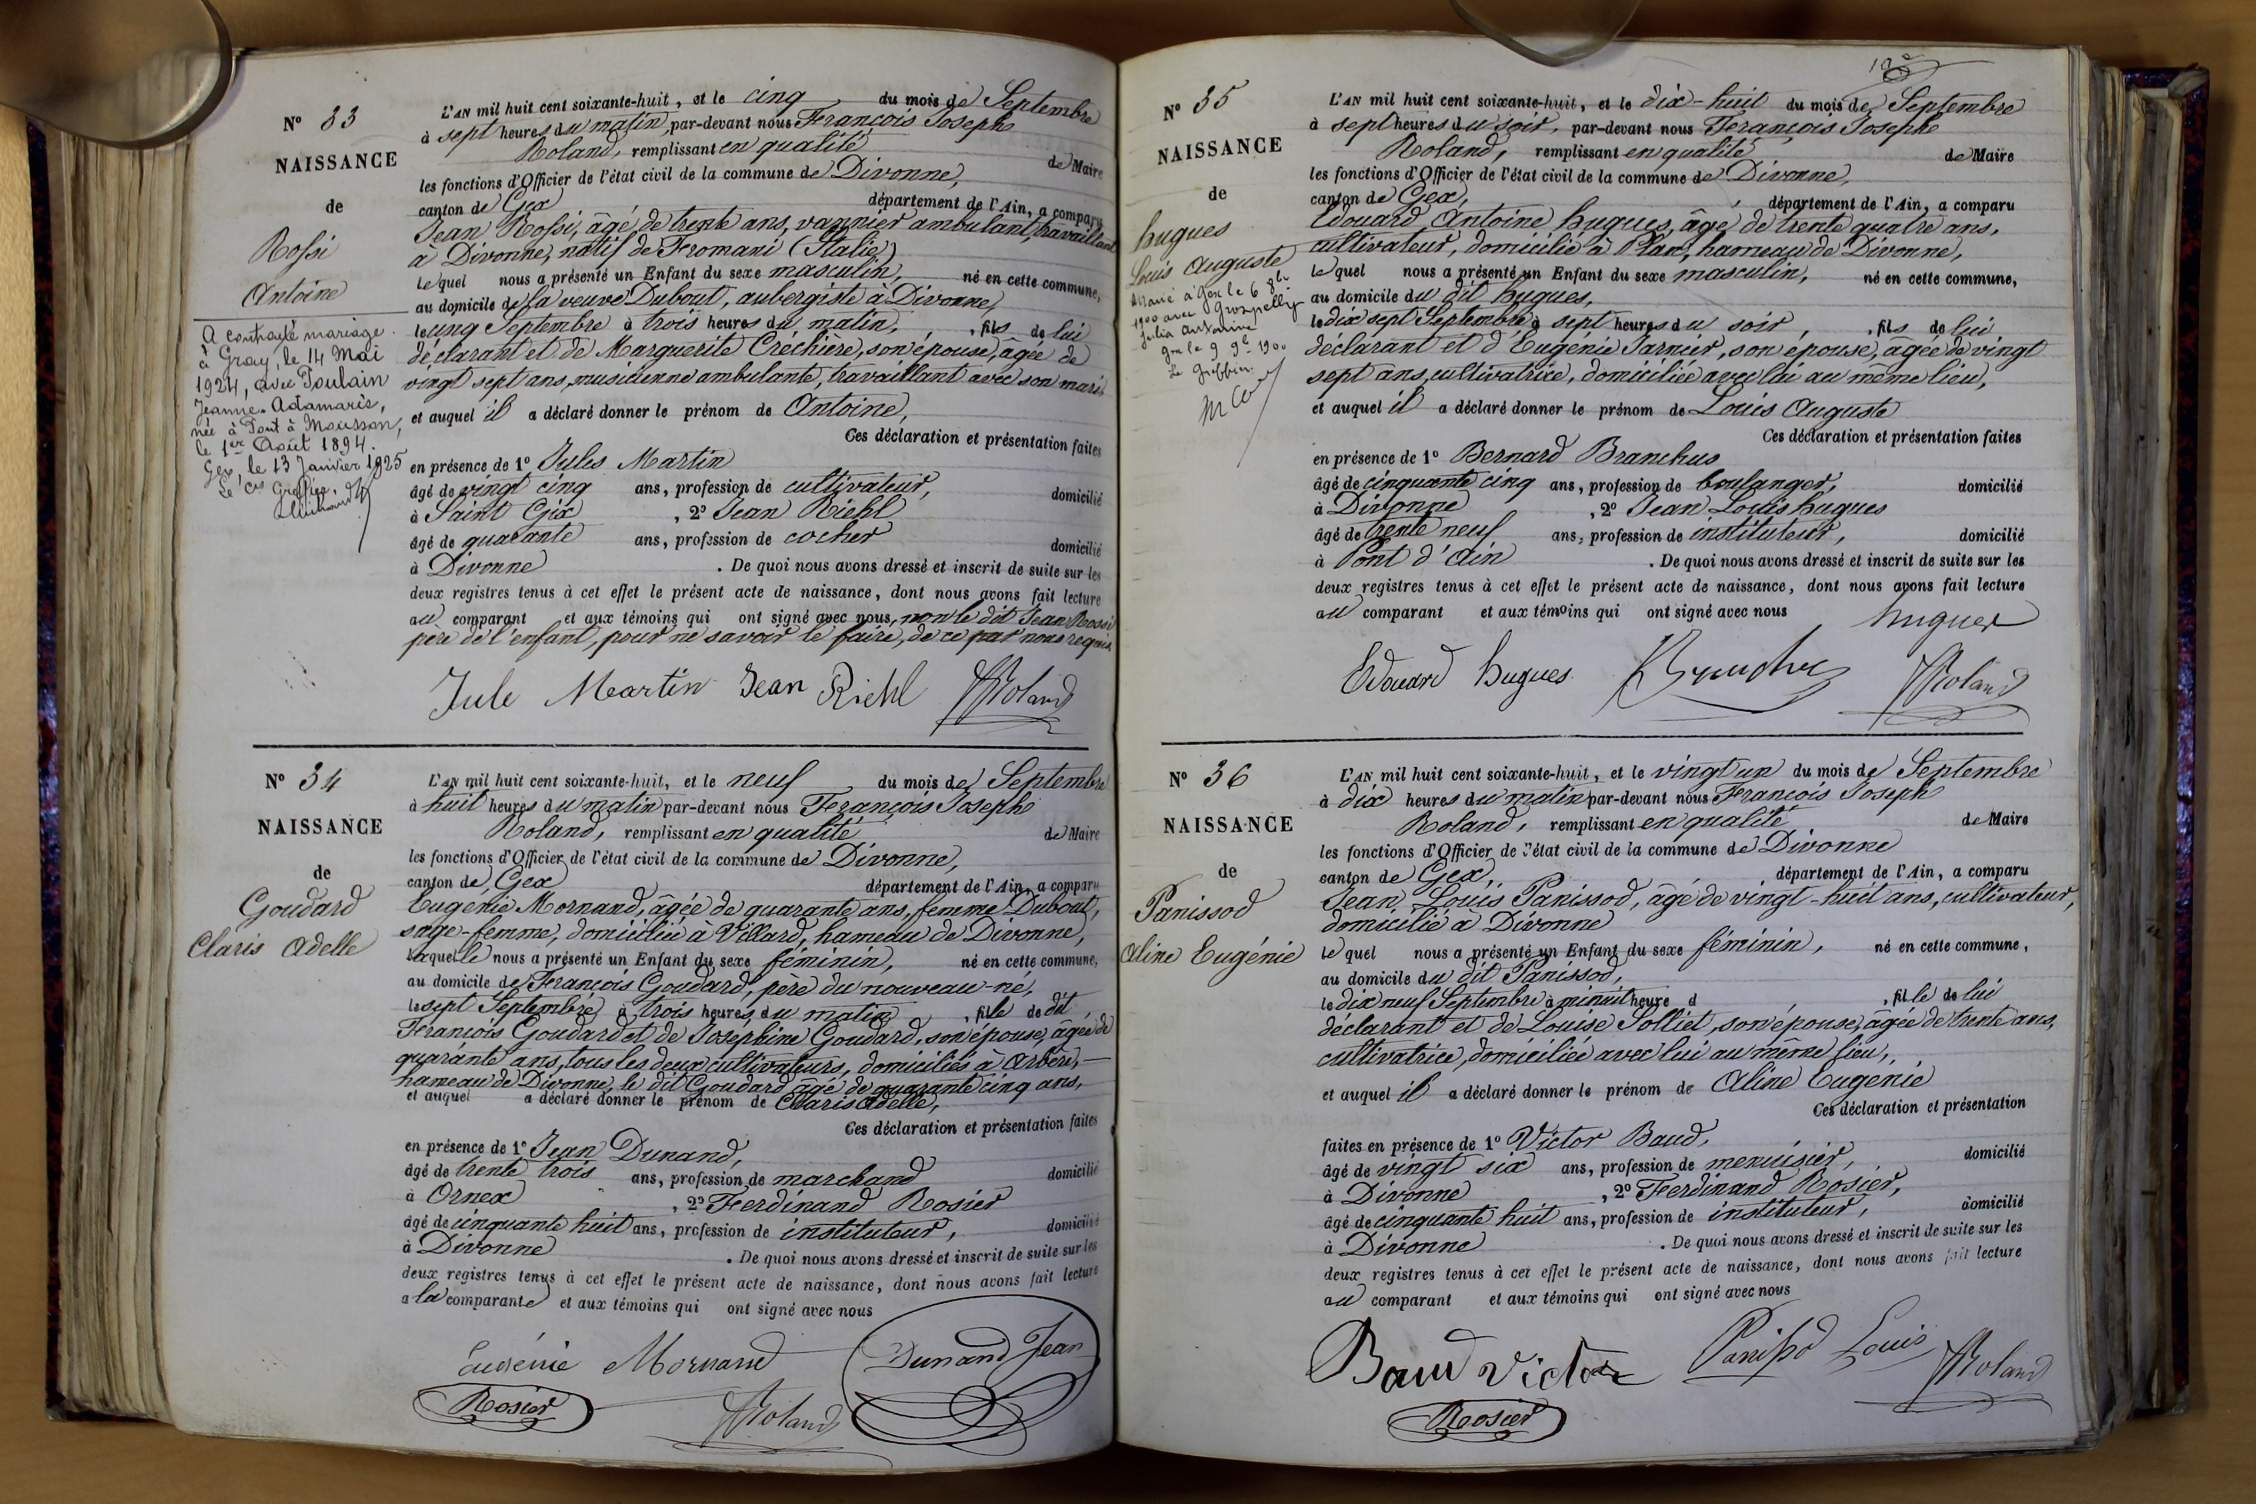 N° 33
NAISSANCE
de
Rossi
Antoine
A contracté mariage
à Gray, le 14 Mai
1924, avec Poulain
Jeanne Adamaris,
née à Pont à Mousson,
le 1er Août 1894.
Gex, le 13 Janvier 1925
Le Cis Greffier,
L'AN mil huit cent soixante-huit, et le cinq du mois de Septembre
à sept heures du matin, par-devant nous François Joseph
Roland, remplissant en qualité de Maire
les fonctions d'Officier de l'état civil de la commune de Divonne,
canton de Gex département de l'Ain, a comparu
Jean Rossi, âgé de trente ans, vannier ambulant, travaillant
à Divonne, natif de Fromani (Italie)
lequel nous a présenté un Enfant du sexe masculin, né en cette commune,
au domicile de la veuve Dubout, aubergiste à Divonne,
le cinq Septembre à trois heures du matin, fils de lui
déclarant et de Marguerite Créchière, son épouse, âgée de
vingt sept ans, musicienne ambulante, travaillant avec son mari
et auquel il a déclaré donner le prénom de Antoine,
Ces déclaration et présentation faites
en présence de 1° Jules Martin
âgé de vingt cinq ans, profession de cultivateur, domicilié
à Saint Gix, 2° Jean Riehl
âgé de quarante ans, profession de cocher domicilié
à Divonne. De quoi nous avons dressé et inscrit de suite sur les
deux registres tenus à cet effet le présent acte de naissance, dont nous avons fait lecture
au comparant et aux témoins qui ont signé avec nous, non le dit Jean Rossi
père de l'enfant, pour ne savoir le faire, de ce par nous requis.
Jule Martin Jean Riehl JRoland
N° 34
NAISSANCE
de
Goudard
Claris Adelle
L'AN mil huit cent soixante-huit, et le neuf du mois de Septembre
à huit heures du matin par-devant nous François Joseph
Roland, remplissant en qualité de Maire
les fonctions d'Officier de l'état civil de la commune de Divonne,
canton de Gex département de l'Ain, a comparu
Eugénie Mornand, âgée de quarante ans, femme Dubout,
sage-femme, domiciliée à Villard, hameau de Divonne,
laquelle nous a présenté un Enfant du sexe féminin, né en cette commune,
au domicile de François Goudard, père du nouveau-né,
le sept Septembre à trois heures du matin, fille de dit
François Goudard et de Joséphine Goudard, son épouse, âgée de
quarante ans, tous les deux cultivateurs, domiciliés à Arbère,
hameau de Divonne, le dit Goudard âgé de quarante cinq ans,
et auquel a déclaré donner le prénom de Claris Adelle,
Ces déclaration et présentation faites
en présence de 1° Jean Dunand,
âgé de trente trois ans, profession de marchand domicilié
à Ornex, 2° Ferdinand Rosier
âgé de cinquante huit ans, profession de instituteur, domicilié
à Divonne. De quoi nous avons dressé et inscrit de suite sur les
deux registres tenus à cet effet le présent acte de naissance, dont nous avons fait lecture
a la comparante et aux témoins qui ont signé avec nous
Eugénie Mornand Dunand Jean
Rosier JRoland
N° 35
NAISSANCE
de
Hugues
Louis Auguste
Marié à Gex le 6 8bre
1900 avec Grospellier
Julia Antonine
Gex le 9 9bre 1900
Le Greffier.
L'AN mil huit cent soixante-huit, et le dix-huit du mois de Septembre
à sept heures du soir, par-devant nous François Joseph
Roland, remplissant en qualité de Maire
les fonctions d'Officier de l'état civil de la commune de Divonne,
canton de Gex, département de l'Ain, a comparu
Edouard Antoine Hugues, âgé de trente quatre ans,
cultivateur, domicilié à Plan, hameau de Divonne,
lequel nous a présenté un Enfant du sexe masculin, né en cette commune,
au domicile du dit Hugues,
le dix sept Septembre à sept heures du soir, fils de lui
déclarant et d'Eugénie Jarnier, son épouse, âgée de vingt
sept ans, cultivatrice, domiciliée avec lui au même lieu,
et auquel il a déclaré donner le prénom de Louis Auguste
Ces déclaration et présentation faites
en présence de 1° Bernard Branchus
âgé de cinquante cinq ans, profession de boulanger, domicilié
à Divonne, 2° Jean Louis Hugues
âgé de trente neuf ans, profession de instituteur, domicilié
à Pont d'Ain. De quoi nous avons dressé et inscrit de suite sur les
deux registres tenus à cet effet le présent acte de naissance, dont nous avons fait lecture
au comparant et aux témoins qui ont signé avec nous
Hugues
Edouard Hugues JRoland
N° 36
NAISSANCE
de
Panissod
Aline Eugénie
L'AN mil huit cent soixante-huit, et le vingt un du mois de Septembre
à dix heures du matin par-devant nous François Joseph
Roland, remplissant en qualité de Maire
les fonctions d'Officier de l'état civil de la commune de Divonne
canton de Gex, département de l'Ain, a comparu
Jean Louis Panissod, âgé de vingt-huit ans, cultivateur,
domicilié à Divonne
lequel nous a présenté un Enfant du sexe féminin, né en cette commune,
au domicile du dit Panissod,
le dix neuf Septembre à minuit heure d, fille de lui
déclarant et de Louise Solliet, son épouse, âgée de trente ans,
cultivatrice, domiciliée avec lui au même lieu,
et auquel il a déclaré donner le prénom de Aline Eugénie
Ces déclaration et présentation
faites en présence de 1° Victor Baud,
âgé de vingt six ans, profession de menuisier, domicilié
à Divonne, 2° Ferdinand Rosier,
âgé de cinquante huit ans, profession de instituteur, domicilié
à Divonne. De quoi nous avons dressé et inscrit de suite sur les
deux registres tenus à cet effet le présent acte de naissance, dont nous avons fait lecture
au comparant et aux témoins qui ont signé avec nous
Baud Victor Panissod Louis JRoland
Rosier